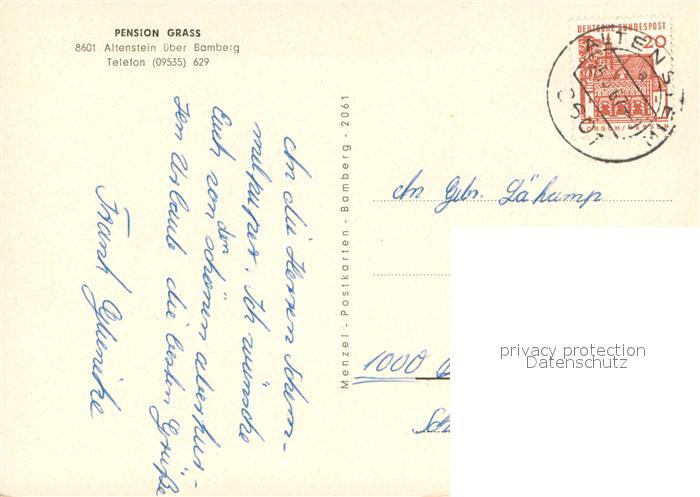 PENSION GRASS
8601 Altenstein über Bamberg
Telefon (09535) 629
An die Herren Schim-
melpilzer. Ich wünsche
Euch von den schönen aber kur-
zen Urlaub die besten Grüße
Frank
Menzel - Postkarten - Bamberg - 2061
DEUTSCHE BUNDESPOST
20
LORSCH/HESSEN
ALTENSTEIN
8601
An Gebr. Läkamp
1000
privacy protection
Datenschutz